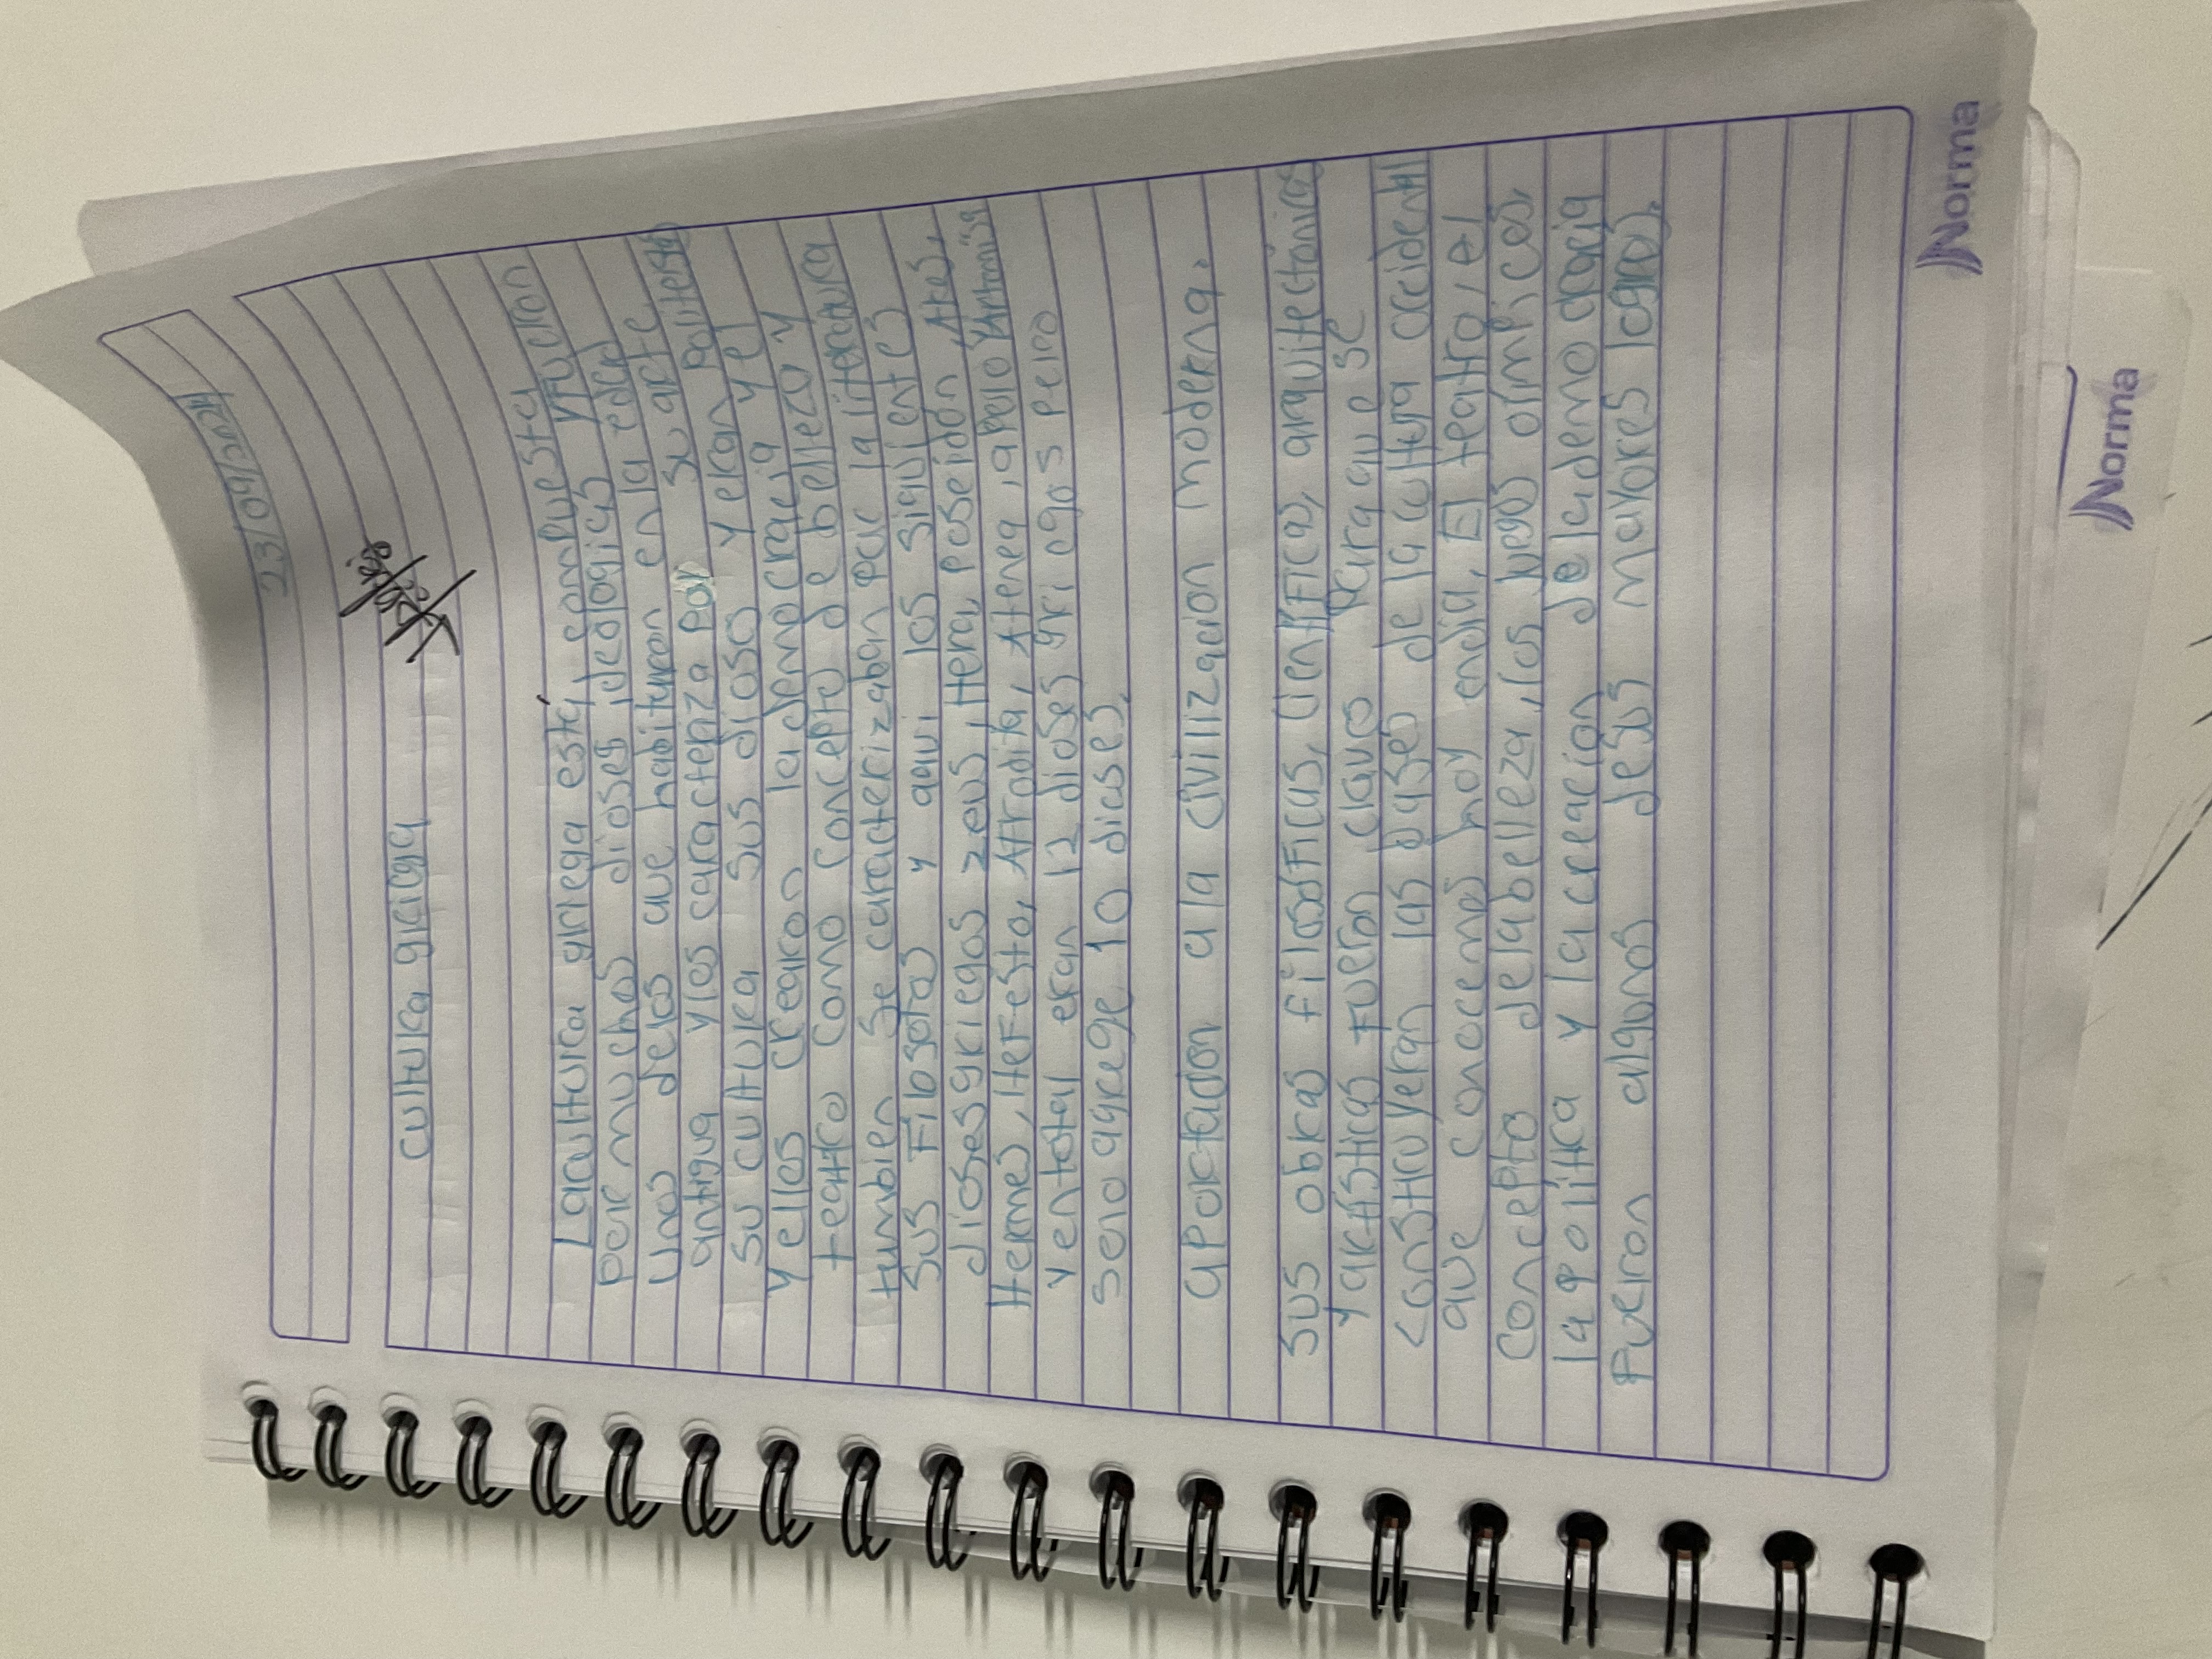 23/09/2024
cultura griega
La cultura griega está compuesta
por muchos dioses ideologias y fueron
unos delos que habituron en la edad
antigua y los caracteriza por su arte
su cultura sus dioso y eran politeista
y ellos crearon la democracia y el
teatro como concepto de bellezo y
tumbien se caracterizaban por la literatura
sus Filosofos y aqui los siguientes
diosesgriegos zeus, Hera, poseidon, Ares,
Hermes, HeFesto, Afrodita, Atenea, apolo YArtemisa
y entotal eran 12 dioses griegos pero
solo agrege 10 dioses.
aportacion a la civilizacion moderna.
Sus obras filosoficas, cientificas, arquitectónicas
y artísticas fueron clave para que se
construyeran las bases de la cultura occidental
que conocemos hoy endia, El teatro, el
concepto delabelleza, los juegos olimpicos,
la politica y la creación de la democracia
fueron algunos desus mayores logros.
Norma
Norma